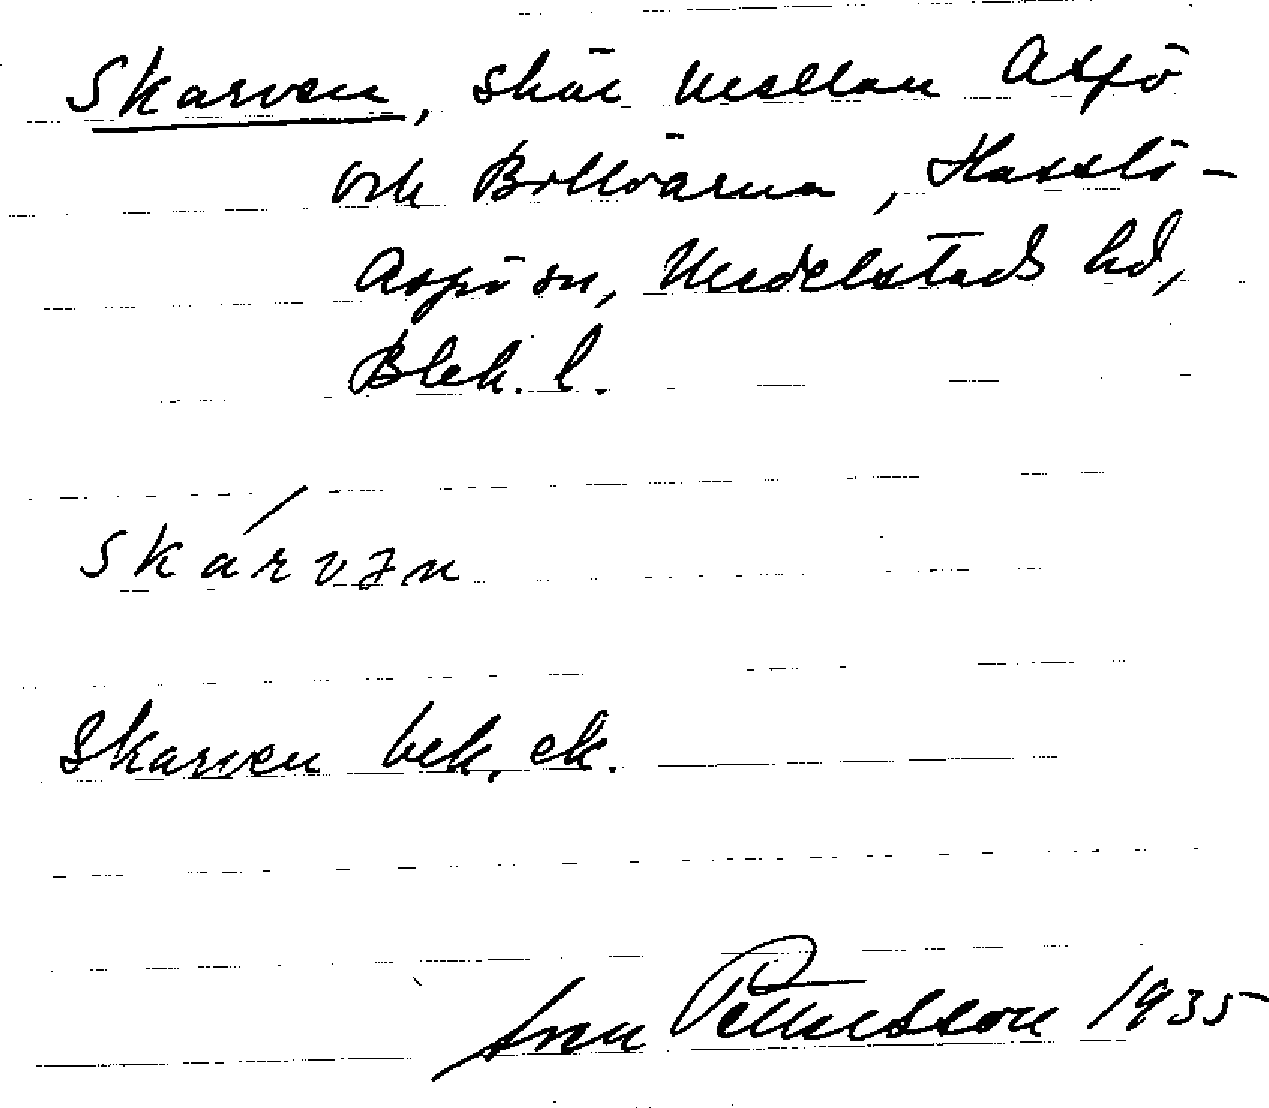 Skarven, skär mellan Aspö
och Bollöarna, Hasslö-
Aspö sn, Medelstads hd,
Blek. l.
Skárvən
Skarven bek. ek.
Sven Pettersson 1935